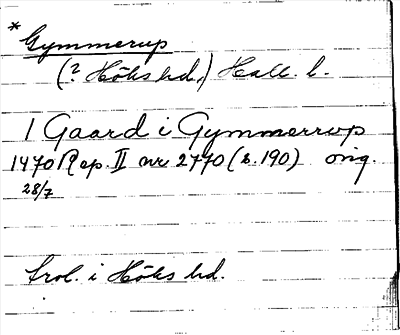 * Gymmerup
(? Höks hd.) Hall. l.
1 Gaard i Gymmerrup
1470 Rep. II nr 2770 (s. 190) orig.
28/7
trol. i Höks hd.